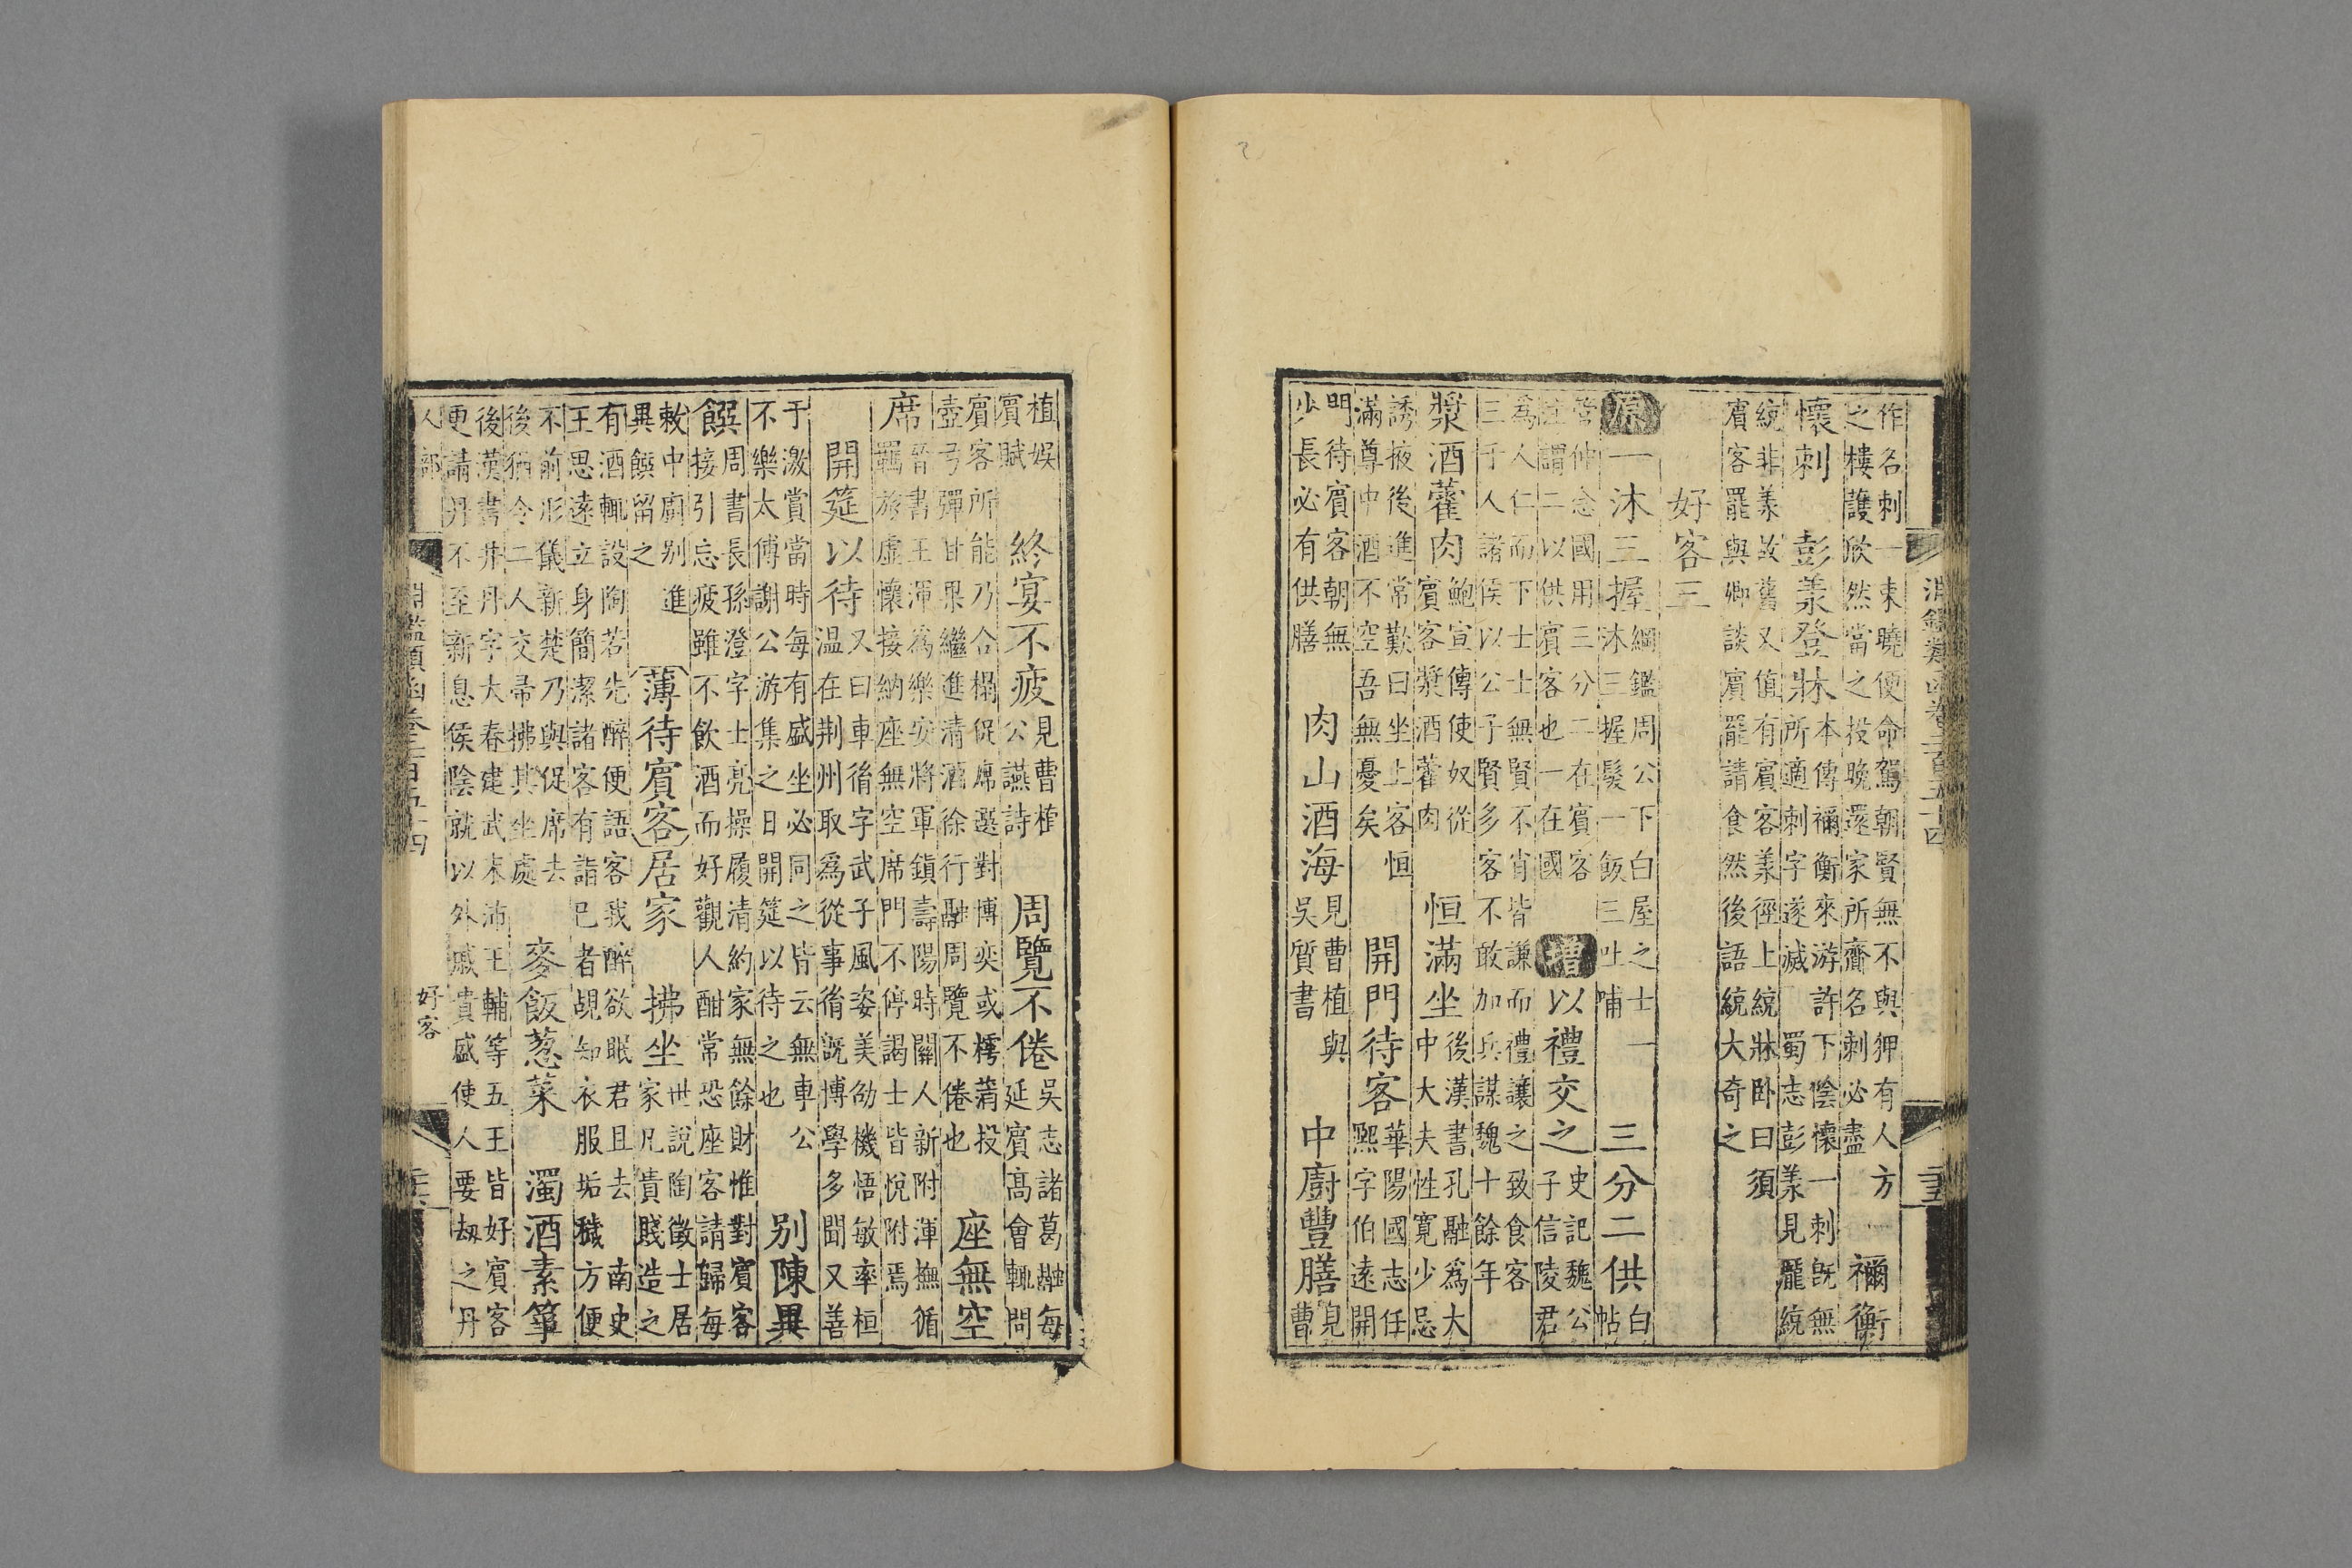 淵鑑類函卷二百五十四 二十五
作名刺一束曉便命駕朝賢無不與狎有人方
之樓護欻然當之投晚還家所齎名刺必盡
禰衡
懷刺 彭羕登牀
本傳禰衡來游許下陰懷一刺旣無
所適刺字遂滅 蜀志彭羕見龎統
統非羕故舊又值有賓客羕徑上統牀卧曰須
賓客罷與卿談賓罷請食然後語統大奇之
好客三
原 一沐三握
綱鑑周公下白屋之士一
沐三握髮一飯三吐哺
三分二供
白
帖
管仲念國用三分二在賓客
注謂二以供賓客也一在國
增 以禮交之
史記魏公
子信陵君
爲人仁而下士士無賢不肖皆謙而禮讓之致食客
三千人諸侯以公子賢多客不敢加兵謀魏十餘年
漿酒藿肉
鮑宣傳使奴從
賓客漿酒藿肉
恒滿坐
後漢書孔融爲大
中大夫性寛少忌
誘掖後進常歎曰坐上客恒
滿尊中酒不空吾無憂矣
開門待客
華陽國志任
熈字伯遠開
門待賓客朝無
少長必有供膳
肉山酒海
見曹植與
吳質書
中廚豐膳
見
曹
植娱
賓賦
終宴不疲
見曹植
公讌詩
周覽不倦
吳志諸葛融每
延賓高會輒問
賓客所能乃合榻促席選對博奕或樗蒱投
壺弓彈甘果繼進清酒徐行融周覽不倦也
座無空
席
晉書王渾爲樂安將軍鎮壽陽時關人新附渾撫循
羈旅虛懷接納座無空席門不停謁士皆悅附焉
開筵以待
又曰車㣧字武子風姿美劭機悟敏率桓
温在荆州取爲從事㣧旣博學多聞又善
于激賞當時每有盛坐必同之皆云無車公
不樂太傅謝公游集之日開筵以待之也
别陳異
饌
周書長孫澄字士亮操履清約家無餘財惟對賓客
接引忘疲雖不飲酒而好觀人酣常恐座客請歸每
敕中廚别進
異饌留之
薄待賓客居家 拂坐
世說陶徵士居
家凡貴賤造之
有酒輒設陶若先醉便語客我醉欲眠君且去 南史
王思遠立身簡潔諸客有詣已者覘知衣服垢穢方便
不前形儀新楚乃與促席去
後猶令二人交帚拂其坐處
麥飯蔥菜 濁酒素簞
後漢書井丹字大春建武末沛王輔等五王皆好賓客
更請丹不至新息侯陰就以外戚貴盛使人要劫之丹
人部 好客
淵鑑類函卷二百五十四 二十六